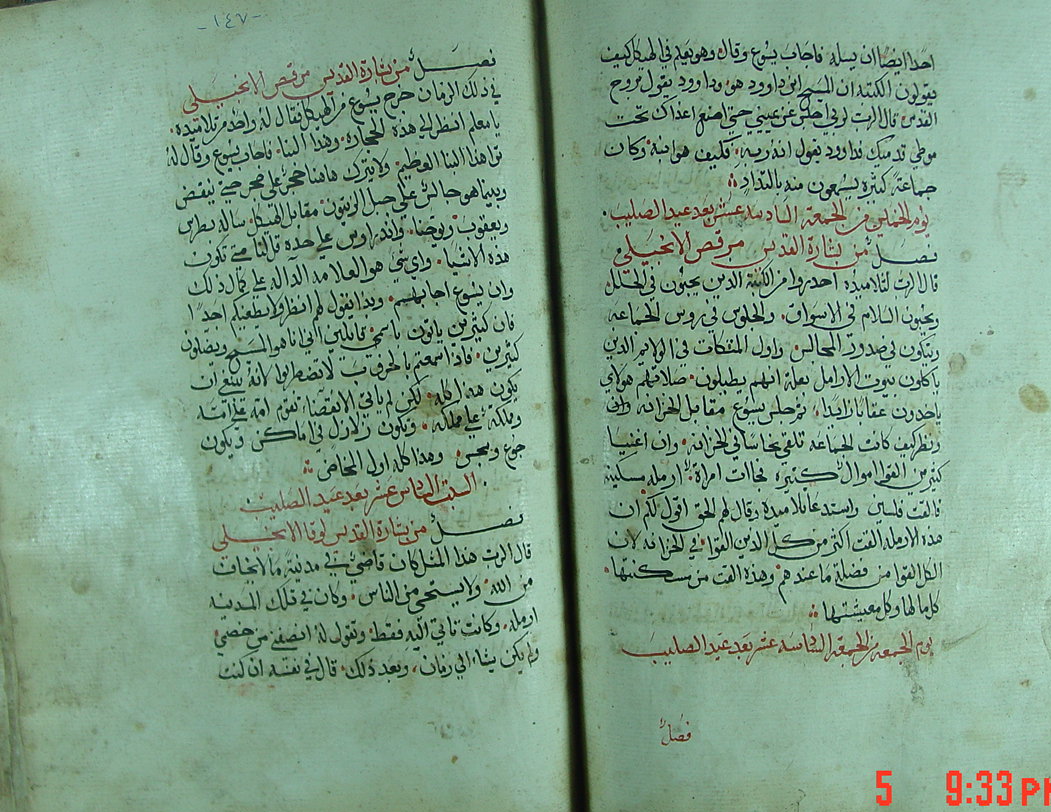 احدا ايضا ان يسله فاجاب يسوع وقال وهو يعلم في الهيكل كيف
يقولون الكتبه ان المسيح ابن داوود هو وداوود يقول بروح
القدس قال الرب لربي اجلس عن يميني حتى اضع اعداك تحت
موطى قدميك فداوود يقول انه ربه فكيف هو ابنه وكان
جماعة كثيره يسمعون منه بالتداد
يوم الخميس من الجمعة السادسة عشر بعد عيد الصليب
فصل من بشارة القديس مرقص الانجيلي
قال الرب لتلاميذه احدروا من الكتبة الدين يحبون في الحلل
ويحبون السلام في الاسواق والجلوس في روس الجماعه
ويتكون في صدور المجالس واول المتكات في الولايم الدين
ياكلون بيوت الارامل بعلة انهم يطيلون صلاتهم هولاي
ياخدون عقابا زايدا ثم جلس يسوع مقابل الخزانه وان
ونظر كيف كانت الجماعه تلقي نحاسا في الخزانه وان اغنيا
كثيرين القوا اموال كثيره فجات امراة ارمله مسكينه
فالقت فلسين فاستدعا تلاميده وقال لهم الحق اقول لكم ان
هده الارمله القت اكثر من كل الدين القوا في الخزانه لان
الكل القوا من فضلة ما عندهم وهذه القت من مسكنتها
كل ما لها وكل معيشتها
يوم الجمعه من الجمعه السادسه عشر بعد عيد الصليب
فصل
-١٤٧-
فصل من بشارة القديس مرقص الانجيلي
في ذلك الزمان خرج يسوع من الهيكل فقال له واحد من تلاميذه
يا معلم انظر الى هذه الحجاره وهذا البنا فاجاب يسوع وقال له
ترا هذا البنا العظيم ولا يترك هاهنا حجر على حجر حتى ينقض
وبينما هو جالس على جبل الزيتون مقابل الهيكل ساله بطرس
ويعقوب ويوحنا واندراوس على حده قل لنا متى تكون
هذه الاشيا واي شي هو العلامه الداله على كمال ذلك
وان يسوع اجابهم وبدا يقول لهم انظروا لا يطغيكم احدا
فان كثيرين ياتون باسمي قايلين اني انا هو المسيح ويضلون
كثيرين فاذا سمعتم بالحروب لا تضطربوا لانه ينبغي ان
يكون هذا كله لكن لم ياتي الانقضا تقوم امة على امه
ومملكة على مملكه ويكون زلازل في اماكن ويكون
جوع وسجس وهذا كله اول المخاض
السبت السادس عشر بعد عيد الصليب
فصل من بشارة القديس لوقا الانجيلي
قال الرب هذا المثل كان قاضي في مدينة ما لا يخاف
من الله ولا يستحي من الناس وكان في تلك المدينه
ارمله وكانت تاتي اليه فقط وتقول له انصفني من خصمي
ولم يكن يشاء الى زمان وبعد ذلك قال في نفسه ان كنت
5 9:33 PM